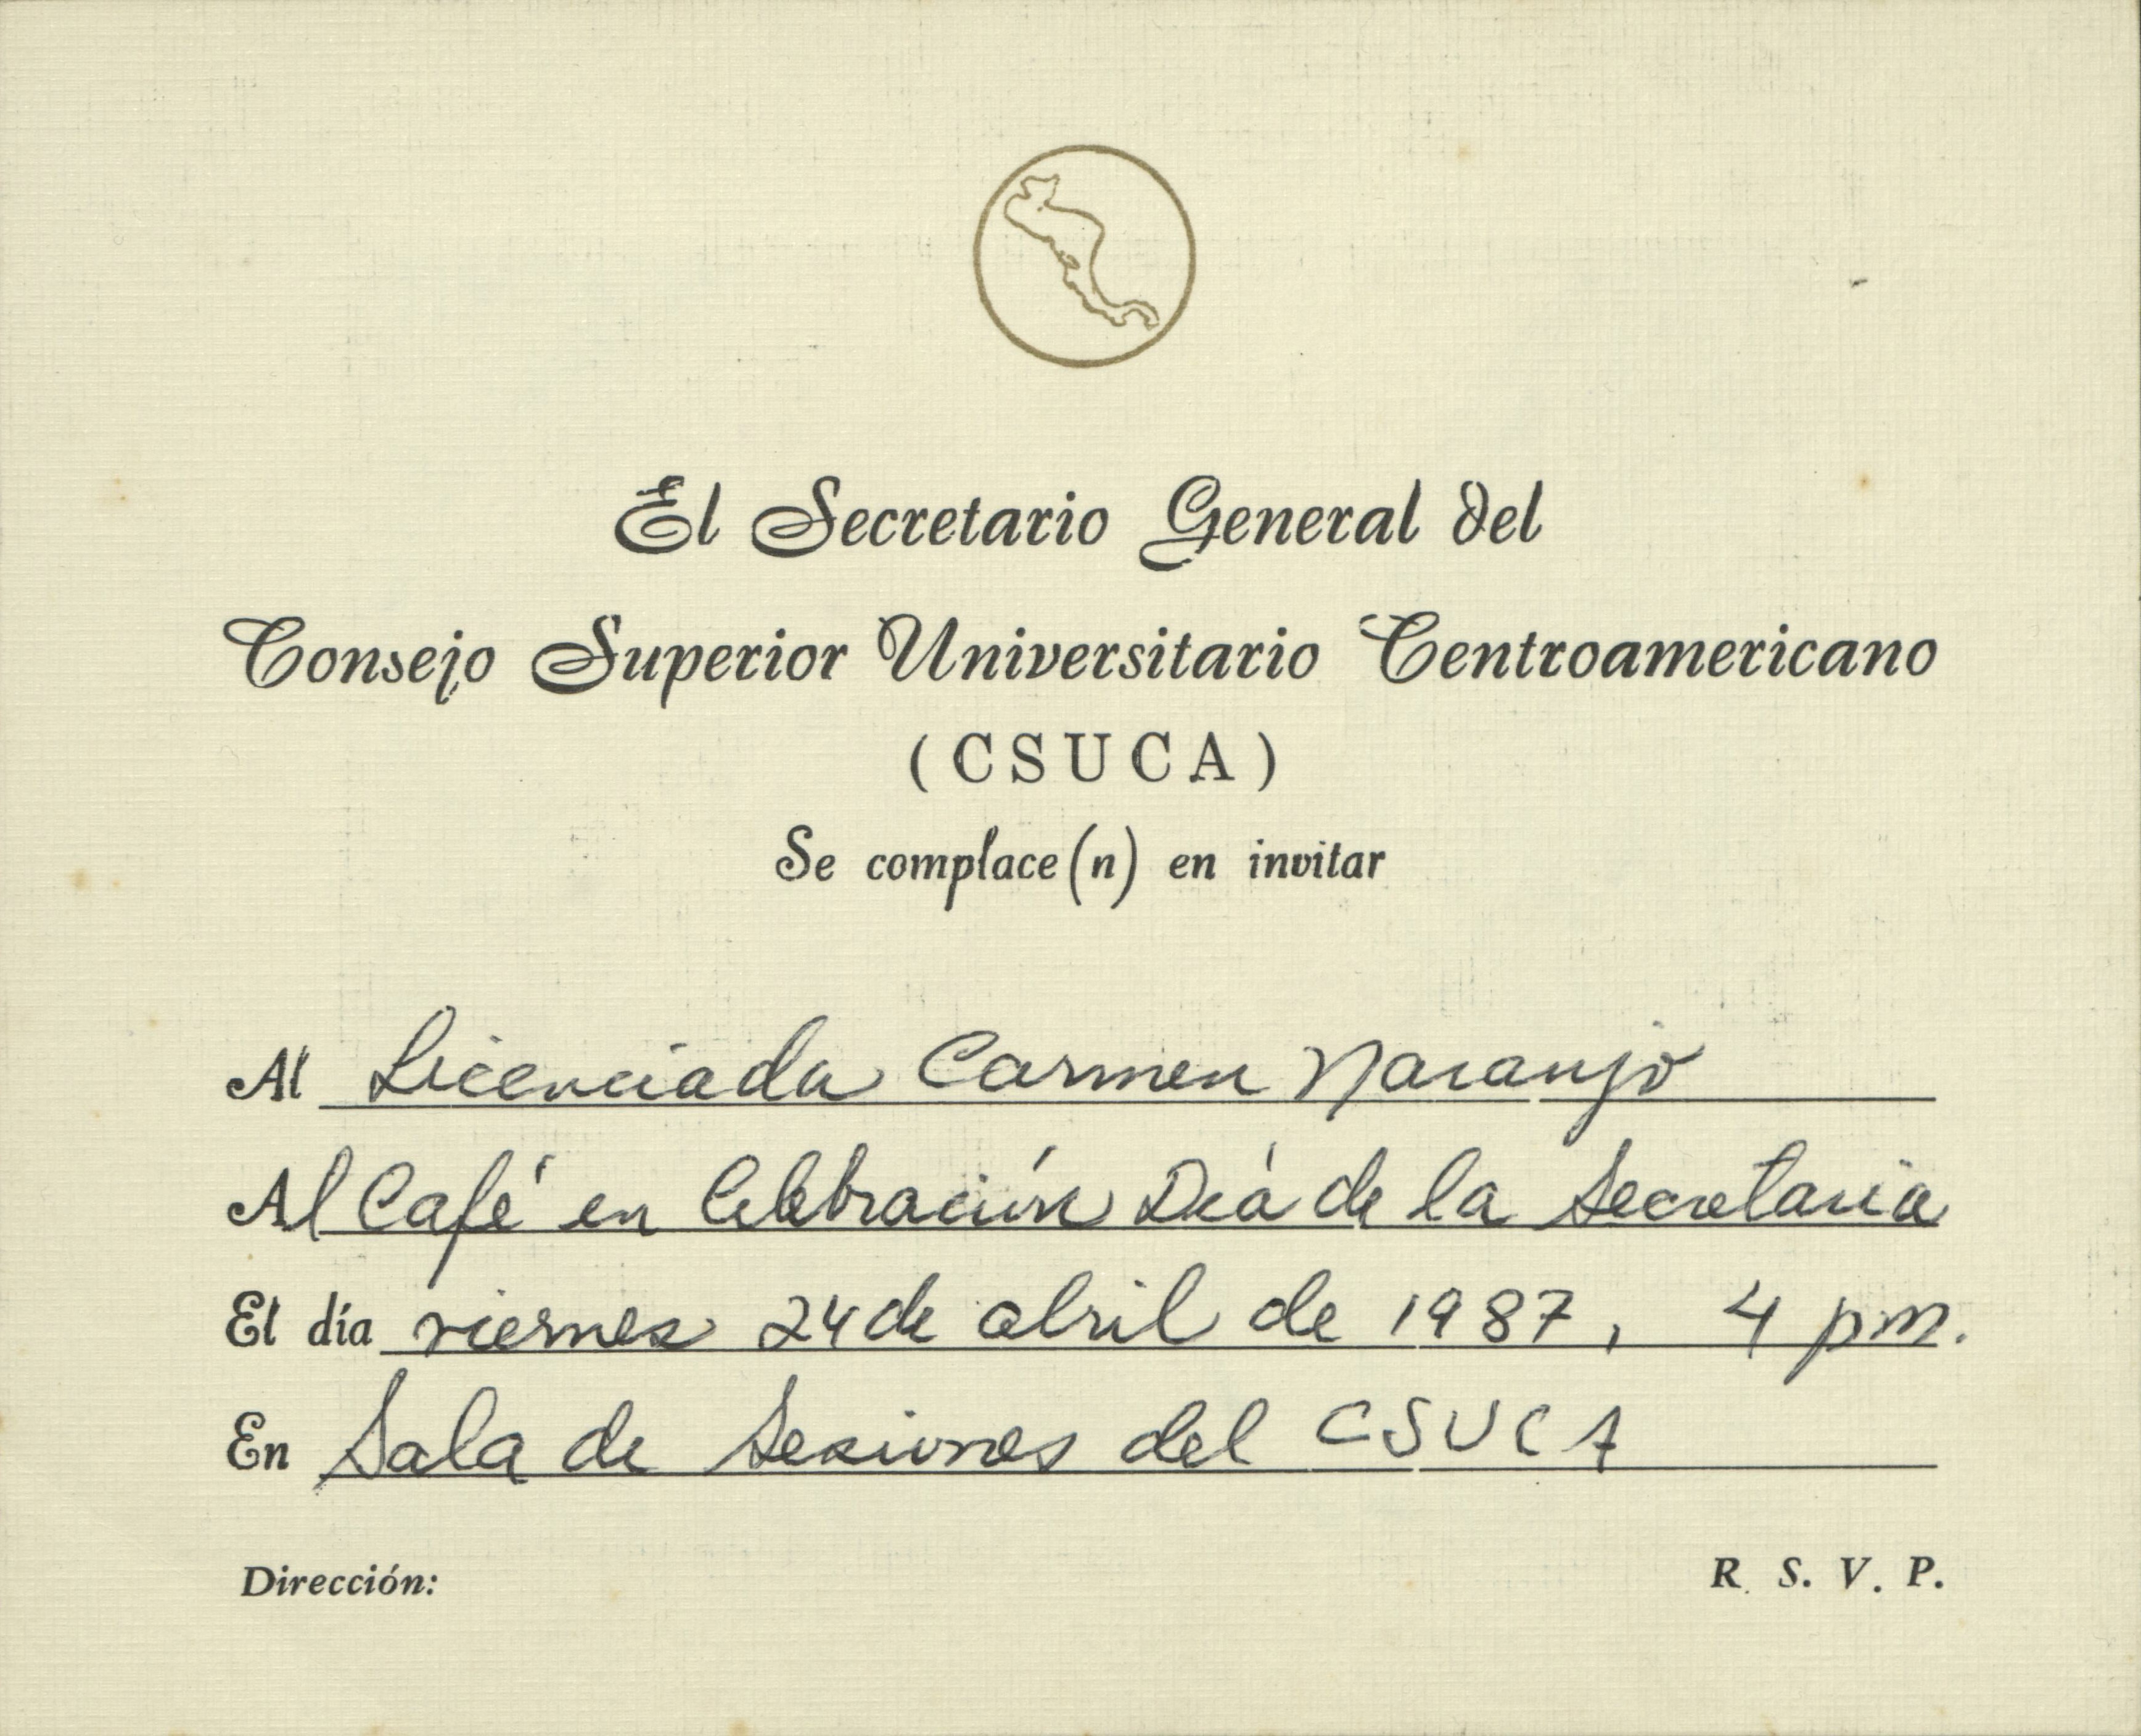 El Secretario General del
Consejo Superior Universitario Centroamericano
(CSUCA)
Se complace(n) en invitar
Al Licenciada Carmen Naranjo
Al Café en Celebración Día de la Secretaria
El día viernes 24 de abril de 1987, 4 pm.
En Sala de Sesiones del CSUCA
Dirección: R. S. V. P.